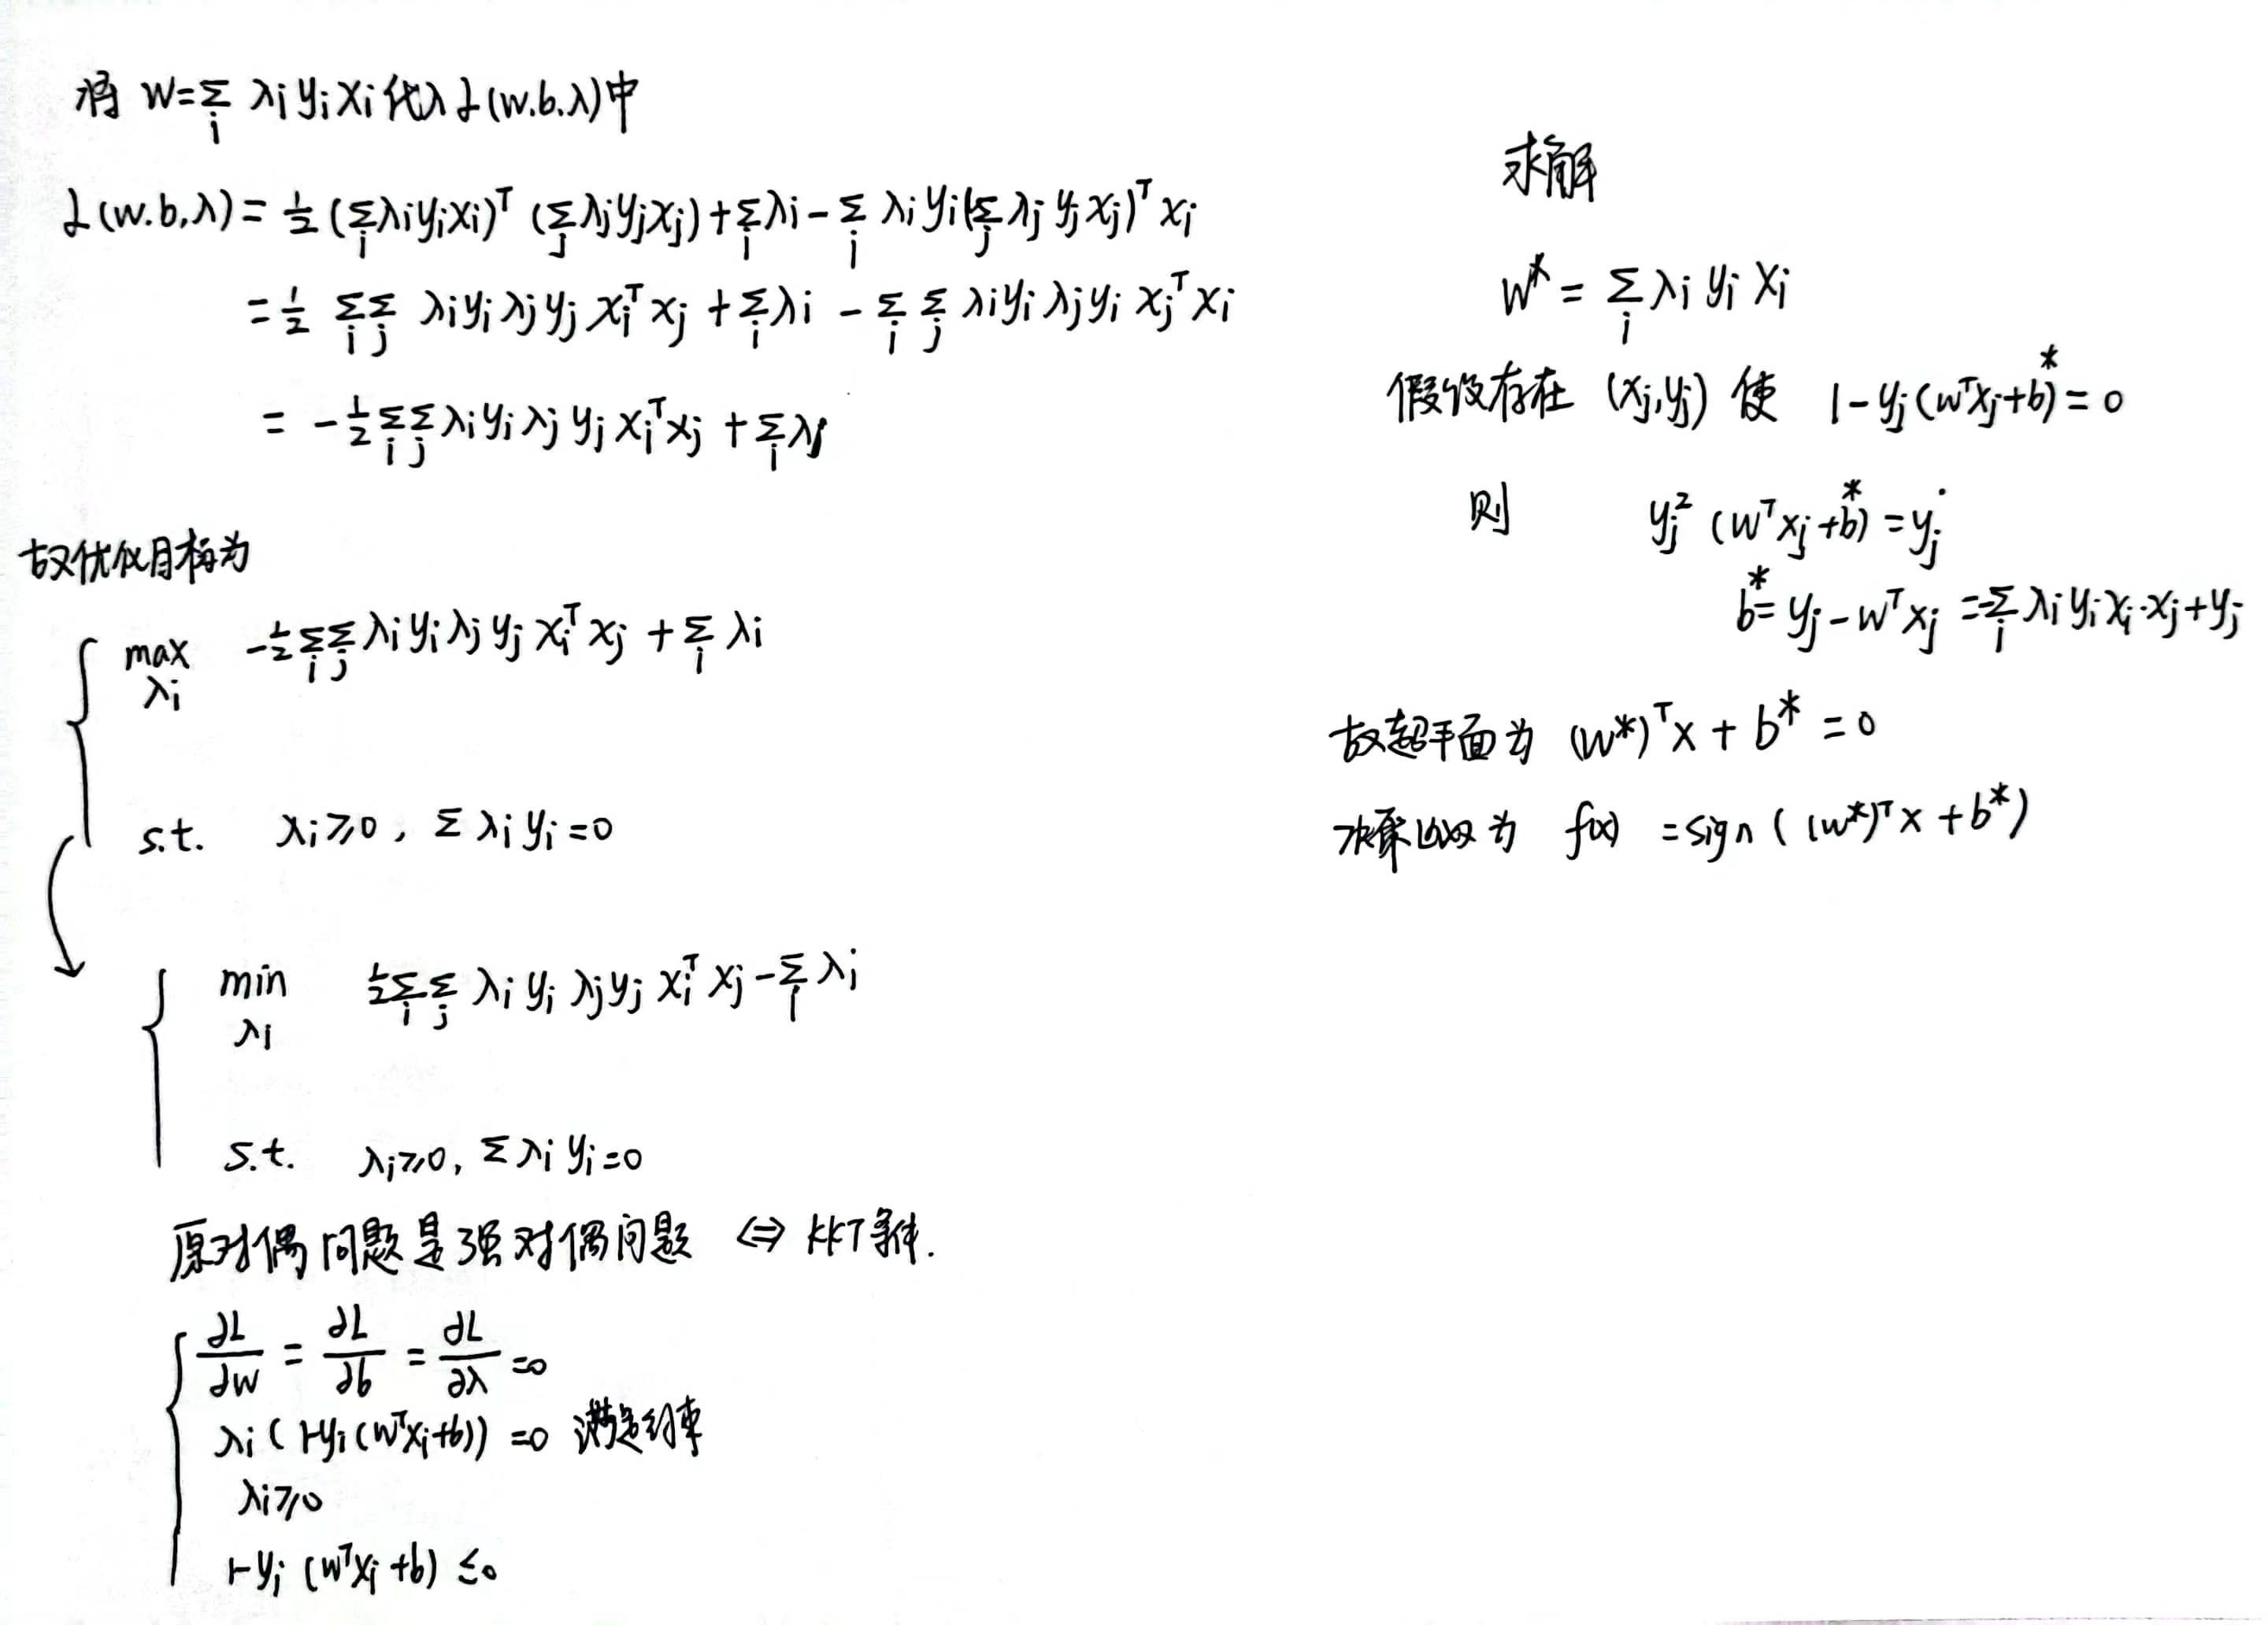 将 w=∑_i λi yi xi 代入 L(w.b.λ)中
L(w.b,λ) = 1/2 (∑_i λi yi xi)^T (∑_j λj yj xj) + ∑_i λi - ∑_i λi yi (∑_j λj yj xj)^T xi
= 1/2 ∑_i ∑_j λi yi λj yj xi^T xj + ∑_i λi - ∑_i ∑_j λi yi λj yi xj^T xi
= - 1/2 ∑_i ∑_j λi yi λj yj xi^T xj + ∑_i λi
故优化目标为
max_λi - 1/2 ∑_i ∑_j λi yi λj yj xi^T xj + ∑_i λi
s.t. λi ≥ 0, ∑ λi yi = 0
min_λi 1/2 ∑_i ∑_j λi yi λj yj xi^T xj - ∑_i λi
s.t. λi ≥ 0, ∑ λi yi = 0
原对偶问题是强对偶问题 ⇔ KKT条件.
∂L/∂w = ∂L/∂b = ∂L/∂λ = 0
λi (1-yi (w^T xi + b)) = 0 满足约束
λi ≥ 0
1-yi (w^T xi + b) ≤ 0
求解
w* = ∑_i λi yi xi
假设存在 (xj,yj) 使 1 - yj (w^T xj + b*) = 0
则 yj^2 (w^T xj + b*) = yj
b* = yj - w^T xj = -∑_i λi yi xi·xj + yj
故超平面为 (w*)^T x + b* = 0
决策函数为 f(x) = sign ( (w*)^T x + b*)